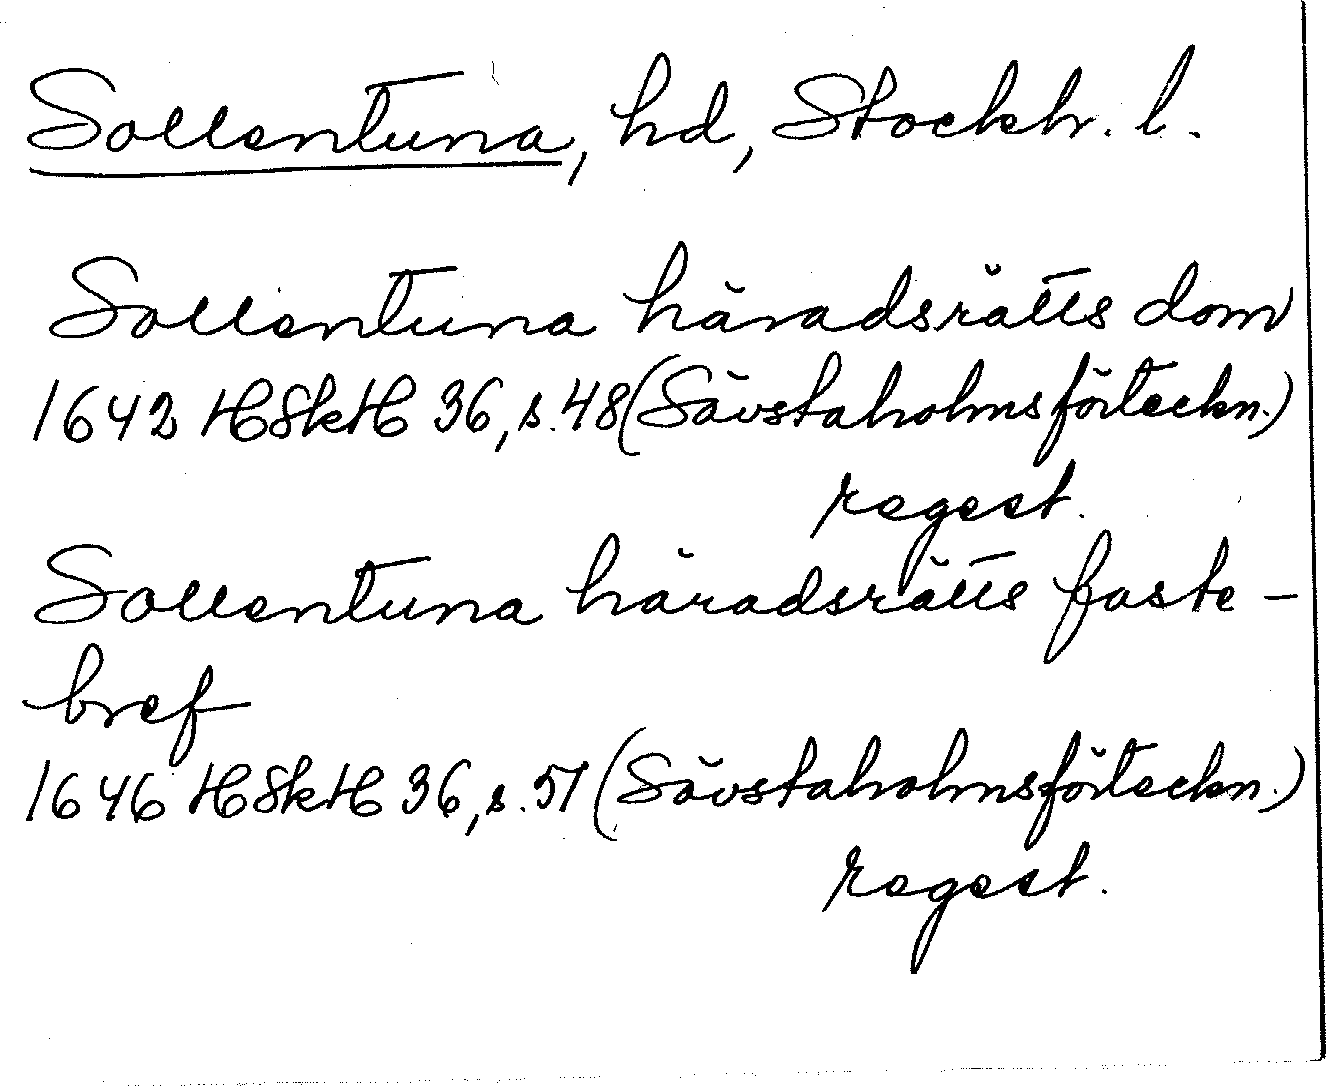 Sollentuna, hd, Stockh. l.
Sollentuna häradsrätts dom
1642 HSkH 36, s. 48 (Sävstaholmsförteckn.)
regest.
Sollentuna häradsrätts faste-
bref
1646 HSkH 36, s. 51 (Sävstaholmsförteckn.)
regest.